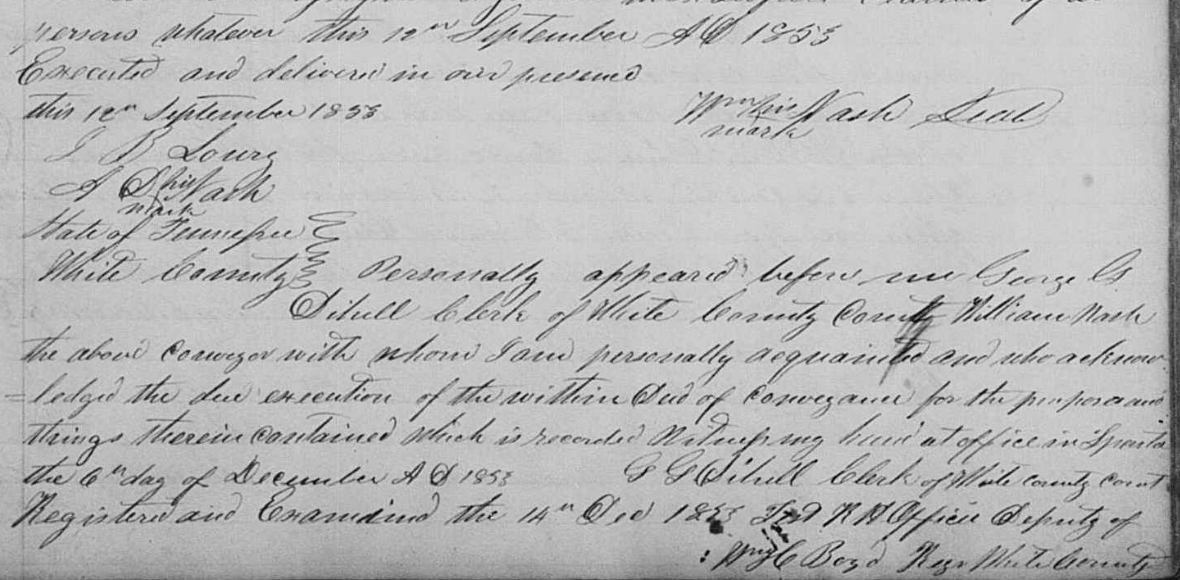 persons whatever this 12th September A D 1853
Executed and delivered in our presence
this 12th September 1853 Wm his Nash Seal
mark
J B Lowry
A D his Nash
mark
State of Tennessee
White County Personally appeared before me George G
Dibrell Clerk of White County Court William Nash
the above conveyor with whom I am personally acquainted and who acknow
=ledged the due execution of the within Deed of Conveyance for the purposes and
things therein contained which is recorded Witness my hand at office in Sparta
the 6th day of December A D 1853 G G Dibrell Clerk of White county court
Registered and Examined the 14th Dec 1853 R H Officer Deputy of
Wm C Boyd Regr White County